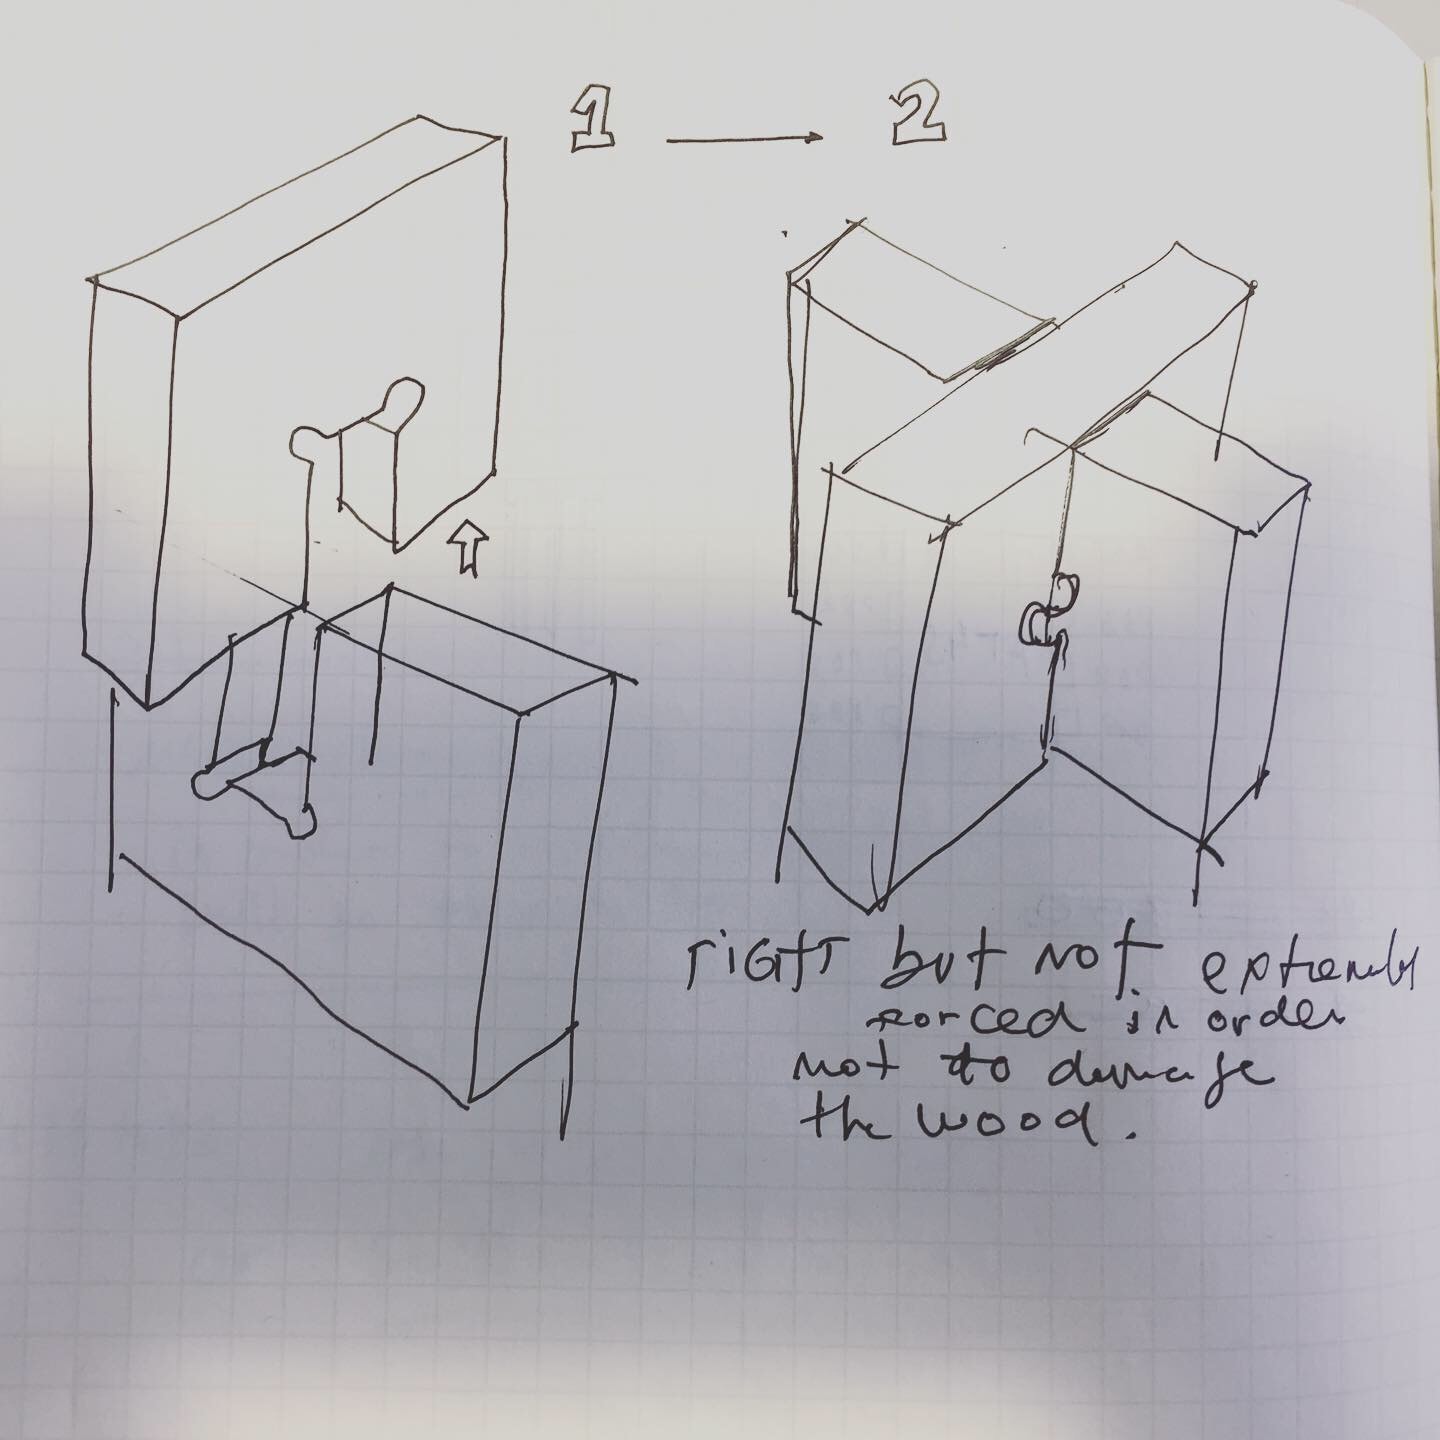 1 → 2
right but not extremely
forced in order
not to damage
the wood.